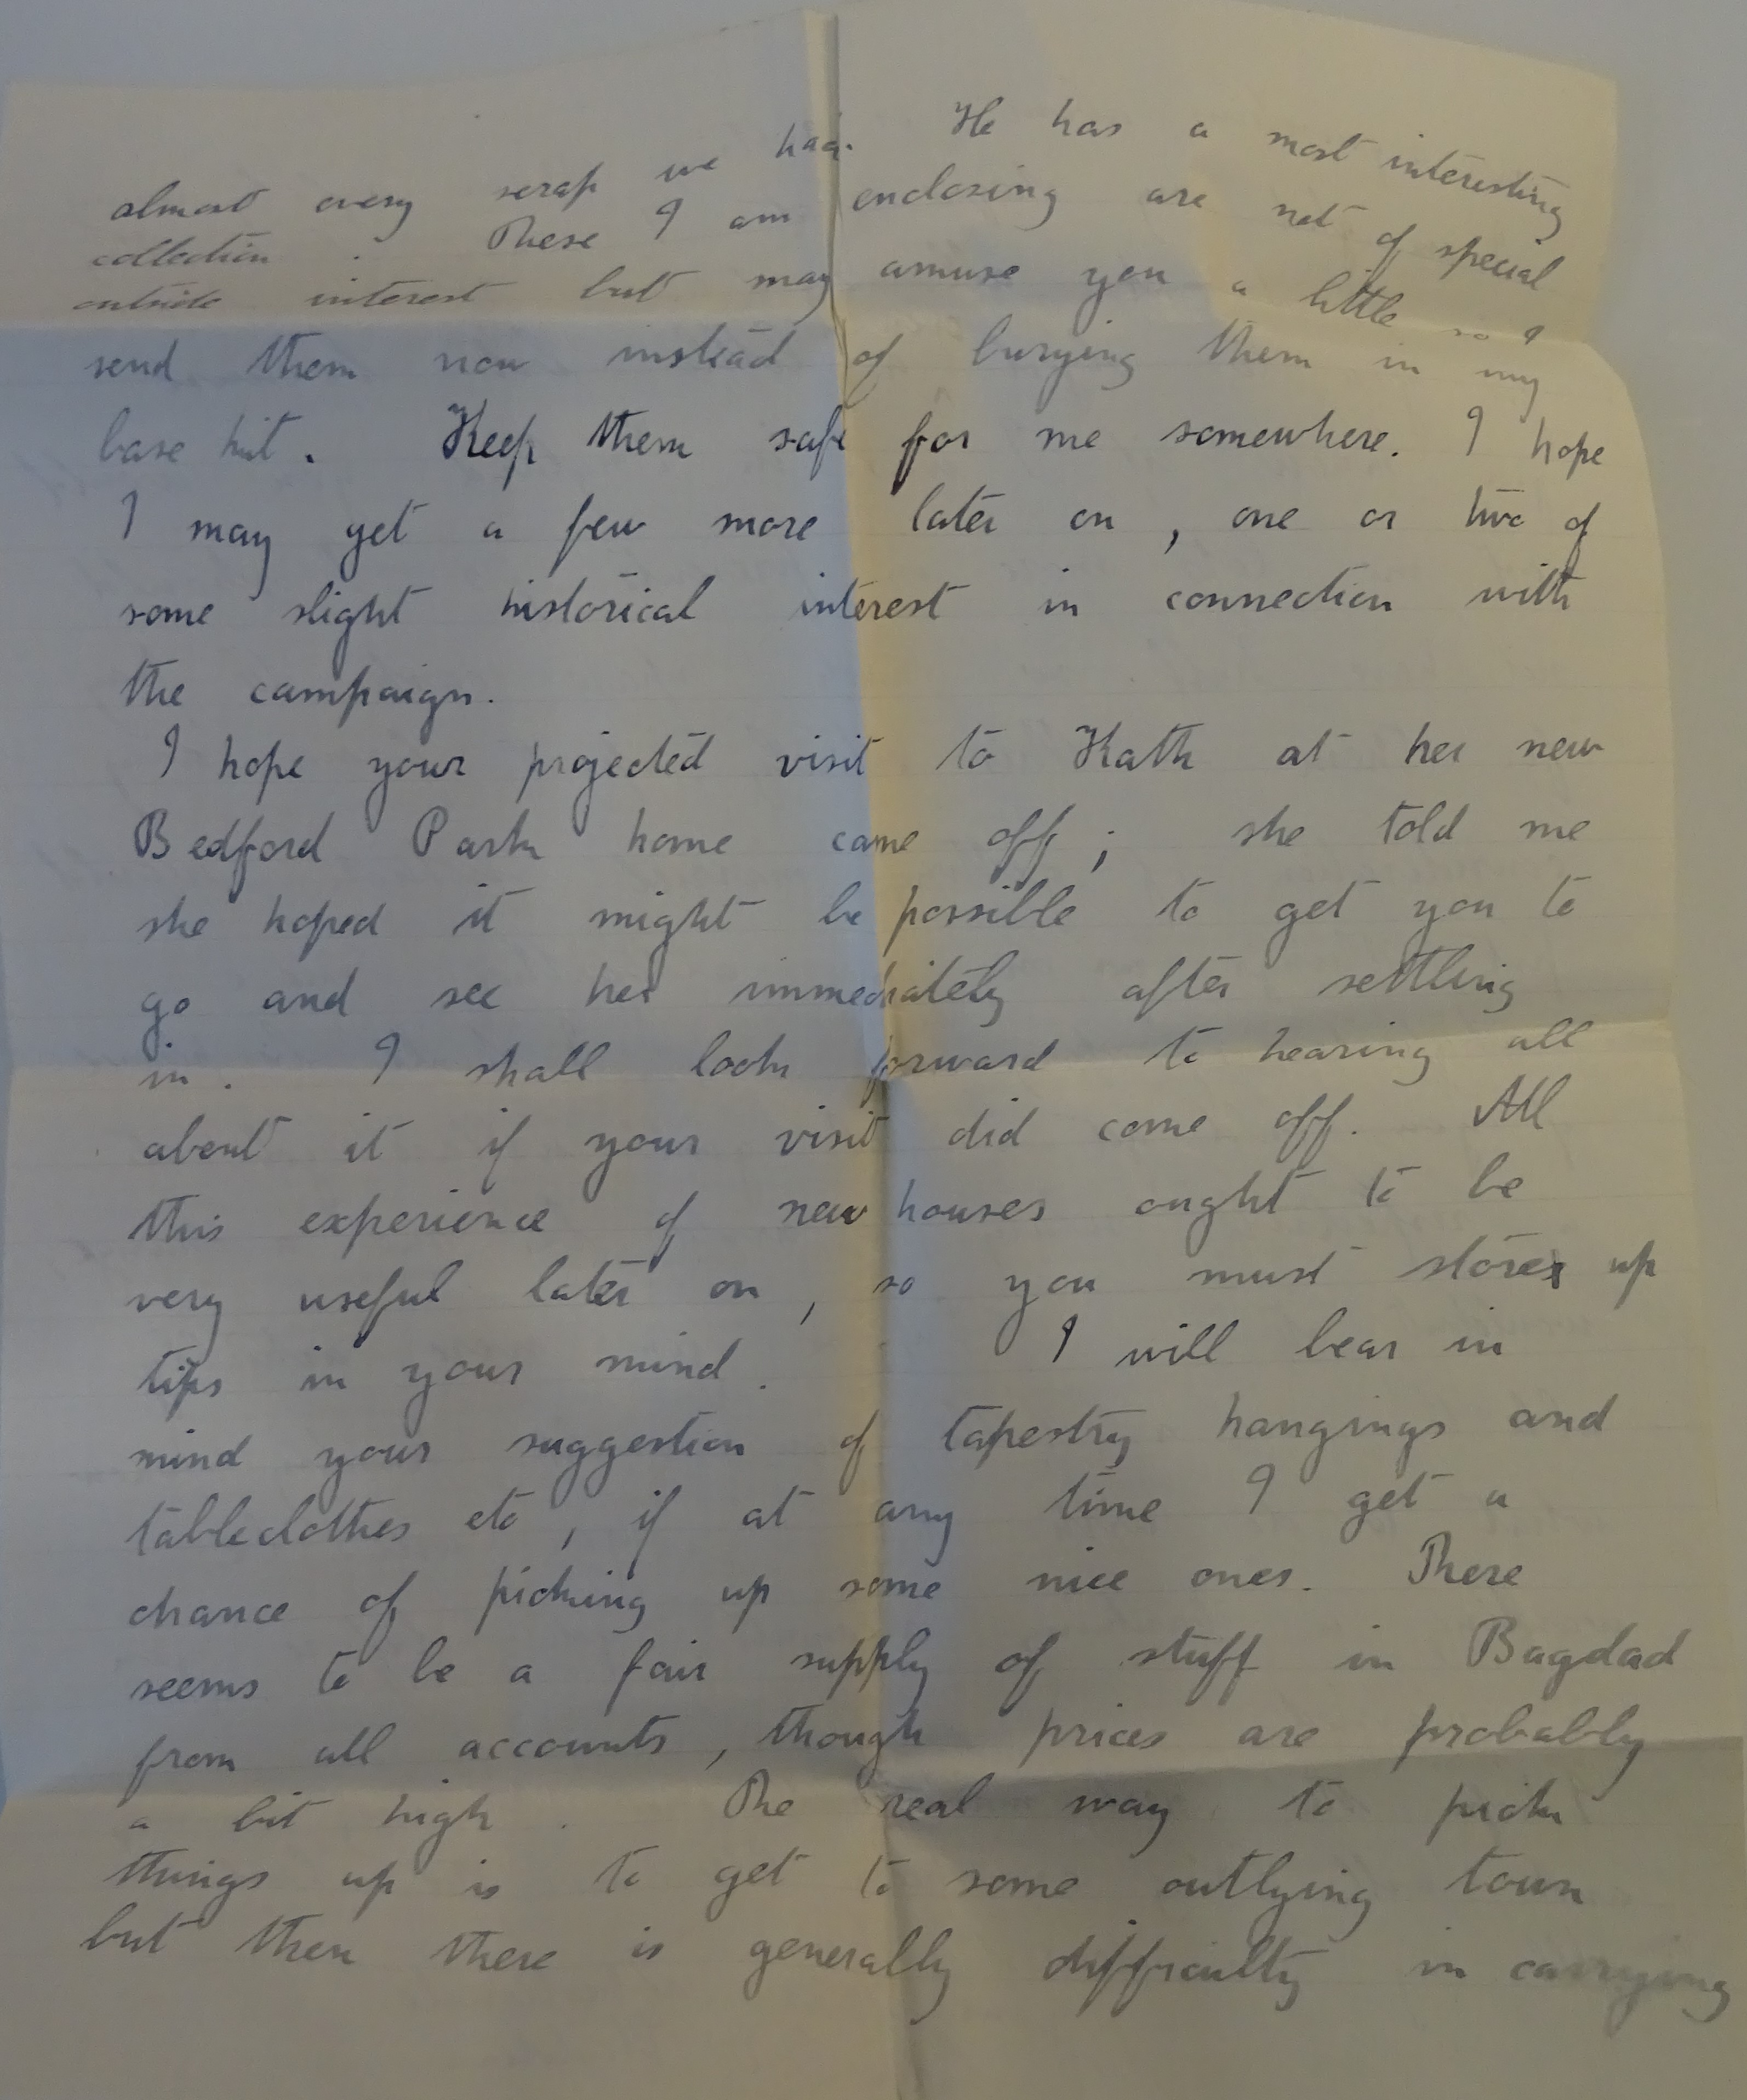 almost every scrap we had. He has a most interesting
collection. These I am enclosing are not of special
outside interest but may amuse you a little so I
send them now instead of burying them in my
base kit. Keep them safe for me somewhere. I hope
I may get a few more later on, one or two of
some slight historical interest in connection with
the campaign.
I hope your projected visit to Kath at her new
Bedford Park home came off; she told me
she hoped it might be possible to get you to
go and see her immediately after settling
in. I shall look forward to hearing all
about it if your visit did come off. All
this experience of new houses ought to be
very useful later on, so you must store up
tips in your mind. I will bear in
mind your suggestion of tapestry hangings and
tableclothes etc, if at any time I get a
chance of picking up some nice ones. There
seems to be a fair supply of stuff in Bagdad
from all accounts, though prices are probably
a bit high. The real way to pick
things up is to get to some outlying town
but then there is generally difficulty in carrying